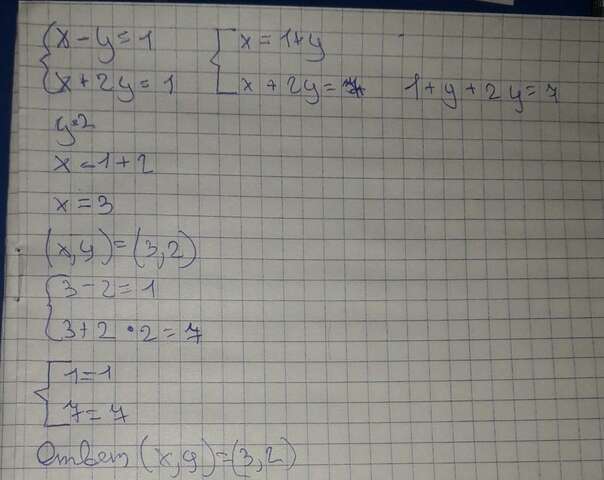 x - y = 1 x = 1 + y
x + 2y = 1 x + 2y = 7 1 + y + 2y = 7
y = 2
x = 1 + 2
x = 3
(x, y) = (3, 2)
3 - 2 = 1
3 + 2 • 2 = 7
1 = 1
7 = 7
Ответ (x, y) = (3, 2)